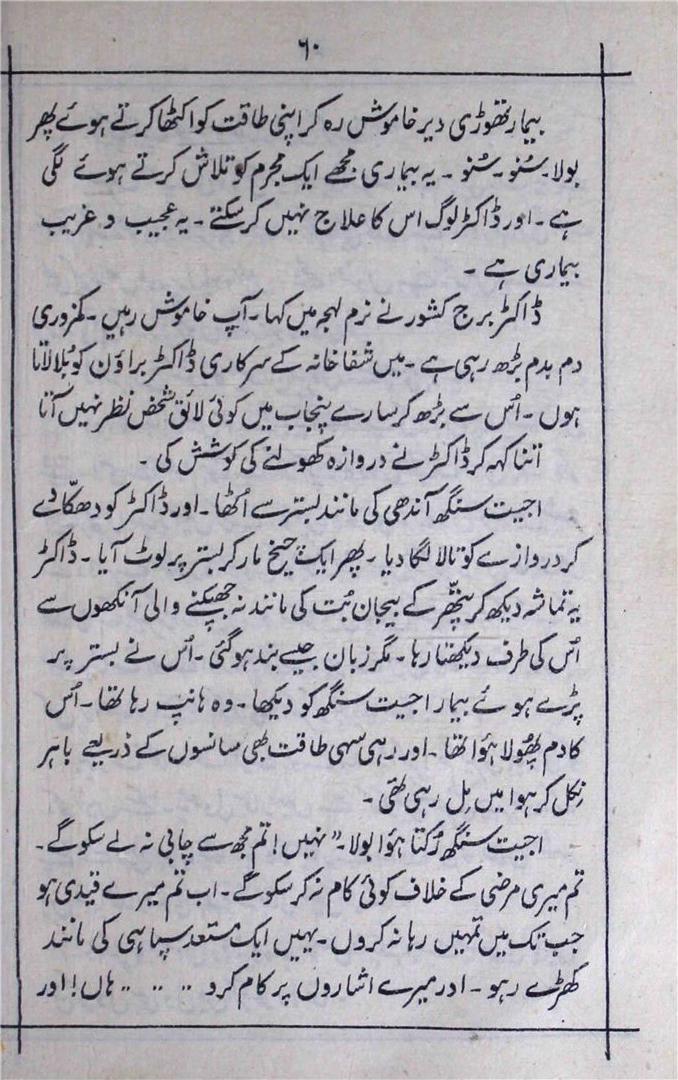 ۶۰
بیمار تھوڑی دیر خاموش رہ کر اپنی طاقت کو اکٹھا کرتے ہوئے پھر
بولا۔ سُنو۔ سُنو ۔ یہ بیماری مجھے ایک مجرم کو تلاش کرتے ہوئے لگی
ہے ۔ اور ڈاکٹر لوگ اس کا علاج نہیں کر سکتے ۔ یہ عجیب و غریب
بیماری ہے ۔
ڈاکٹر برج کشور نے نرم لہجہ میں کہا ۔ آپ خاموش رہیں ۔ کمزوری
دم بدم بڑھ رہی ہے ۔ میں شفا خانہ کے سرکاری ڈاکٹر براؤن کو بُلا لاتا
ہوں ۔ اُس سے بڑھ کر سارے پنجاب میں کوئی لائق شخص نظر نہیں آتا
اتنا کہہ کر ڈاکٹر نے دروازہ کھولنے کی کوشش کی ۔
اجیت سنگھ آندھی کی مانند بستر سے اُٹھا ۔ اور ڈاکٹر کو دھکّا دے
کر دروازے کو تالا لگا دیا ۔ پھر ایک چیخ مار کر بستر پر لوٹ آیا ۔ ڈاکٹر
یہ تماشہ دیکھ کر پتھّر کے بیجان بُت کی مانند نہ جھپکنے والی آنکھوں سے
اُس کی طرف دیکھتا رہا ۔ مگر زبان جیسے بند ہو گئی ۔ اُس نے بستر پر
پڑے ہوئے بیمار اجیت سنگھ کو دیکھا ۔ وہ ہانپ رہا تھا ۔ اُس
کا دم پھُولا ہؤا تھا ۔ اور رہی سہی طاقت بھی سانسوں کے ذریعے باہر
نِکل کر ہوا میں مِل رہی تھی ۔
اجیت سنگھ رُکتا ہؤا بولا ۔ ”نہیں! تم مجھ سے چابی نہ لے سکو گے ۔
تم میری مرضی کے خلاف کوئی کام نہ کر سکو گے ۔ اب تم میرے قیدی ہو
جب تک میں تمہیں رہا نہ کروں ۔ یہیں ایک مستعد سپاہی کی مانند
کھڑے رہو ۔ اور میرے اشاروں پر کام کرو ۔۔ ۔۔ ۔۔ ہاں! اور